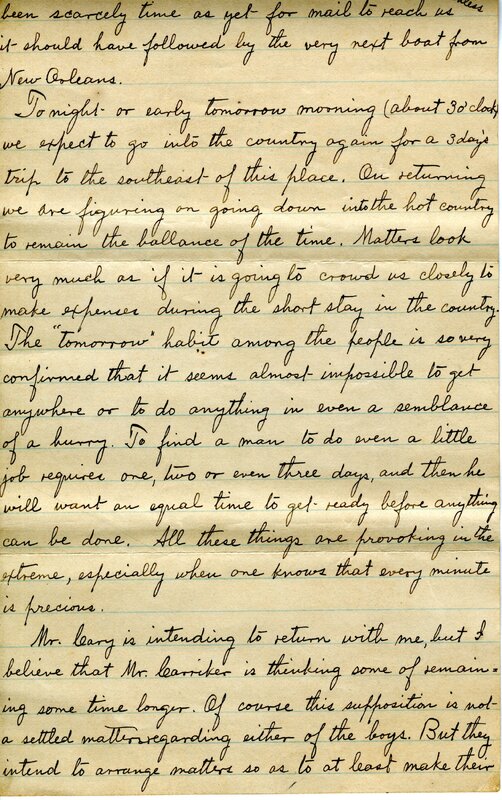 been scarcely time as yet for mail to reach us unless
it should have followed by the very next boat from
New Orleans.
Tonight or early tomorrow morning (about 3 o'clock)
we expect to go into the country again for a 3 days
trip to the southeast of this place. On returning
we are figuring on going down into the hot country
to remain the ballance of the time. Matters look
very much as if it is going to crowd us closely to
make expenses during the short stay in the country.
The "tomorrow" habit among the people is so very
confirmed that it seems almost impossible to get
anywhere or to do anything in even a semblance
of a hurry. To find a man to do even a little
job requires one, two or even three days, and then he
will want an equal time to get ready before anything
can be done. All these things are provoking in the
extreme, especially when one knows that every minute
is precious.
Mr. Cary is intending to return with me, but I
believe that Mr. Carriker is thinking some of remain=
ing some time longer. Of course this supposition is not
a settled matter regarding either of the boys. But they
intend to arrange matters so as to at least make their